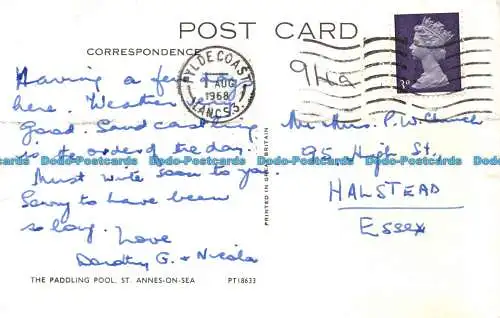 POST CARD
CORRESPONDENCE
Having a few days
here. Weather
good. Sandcastling
is the order of the day.
Must write soon to you.
Sorry to have been
so long. Love
Dorothy G. & Nicola
THE PADDLING POOL, ST. ANNES-ON-SEA
PT18633
PRINTED IN GREAT BRITAIN
FYLDE COAST
1 AUG
1968
LANCS
3D
Mr Mrs. P. W. Church
95 High St,
HALSTEAD
ESSEX
Dodo-Postcards Dodo-Postcards Dodo-Postcards Dodo-Postcards Dodo-Postcards